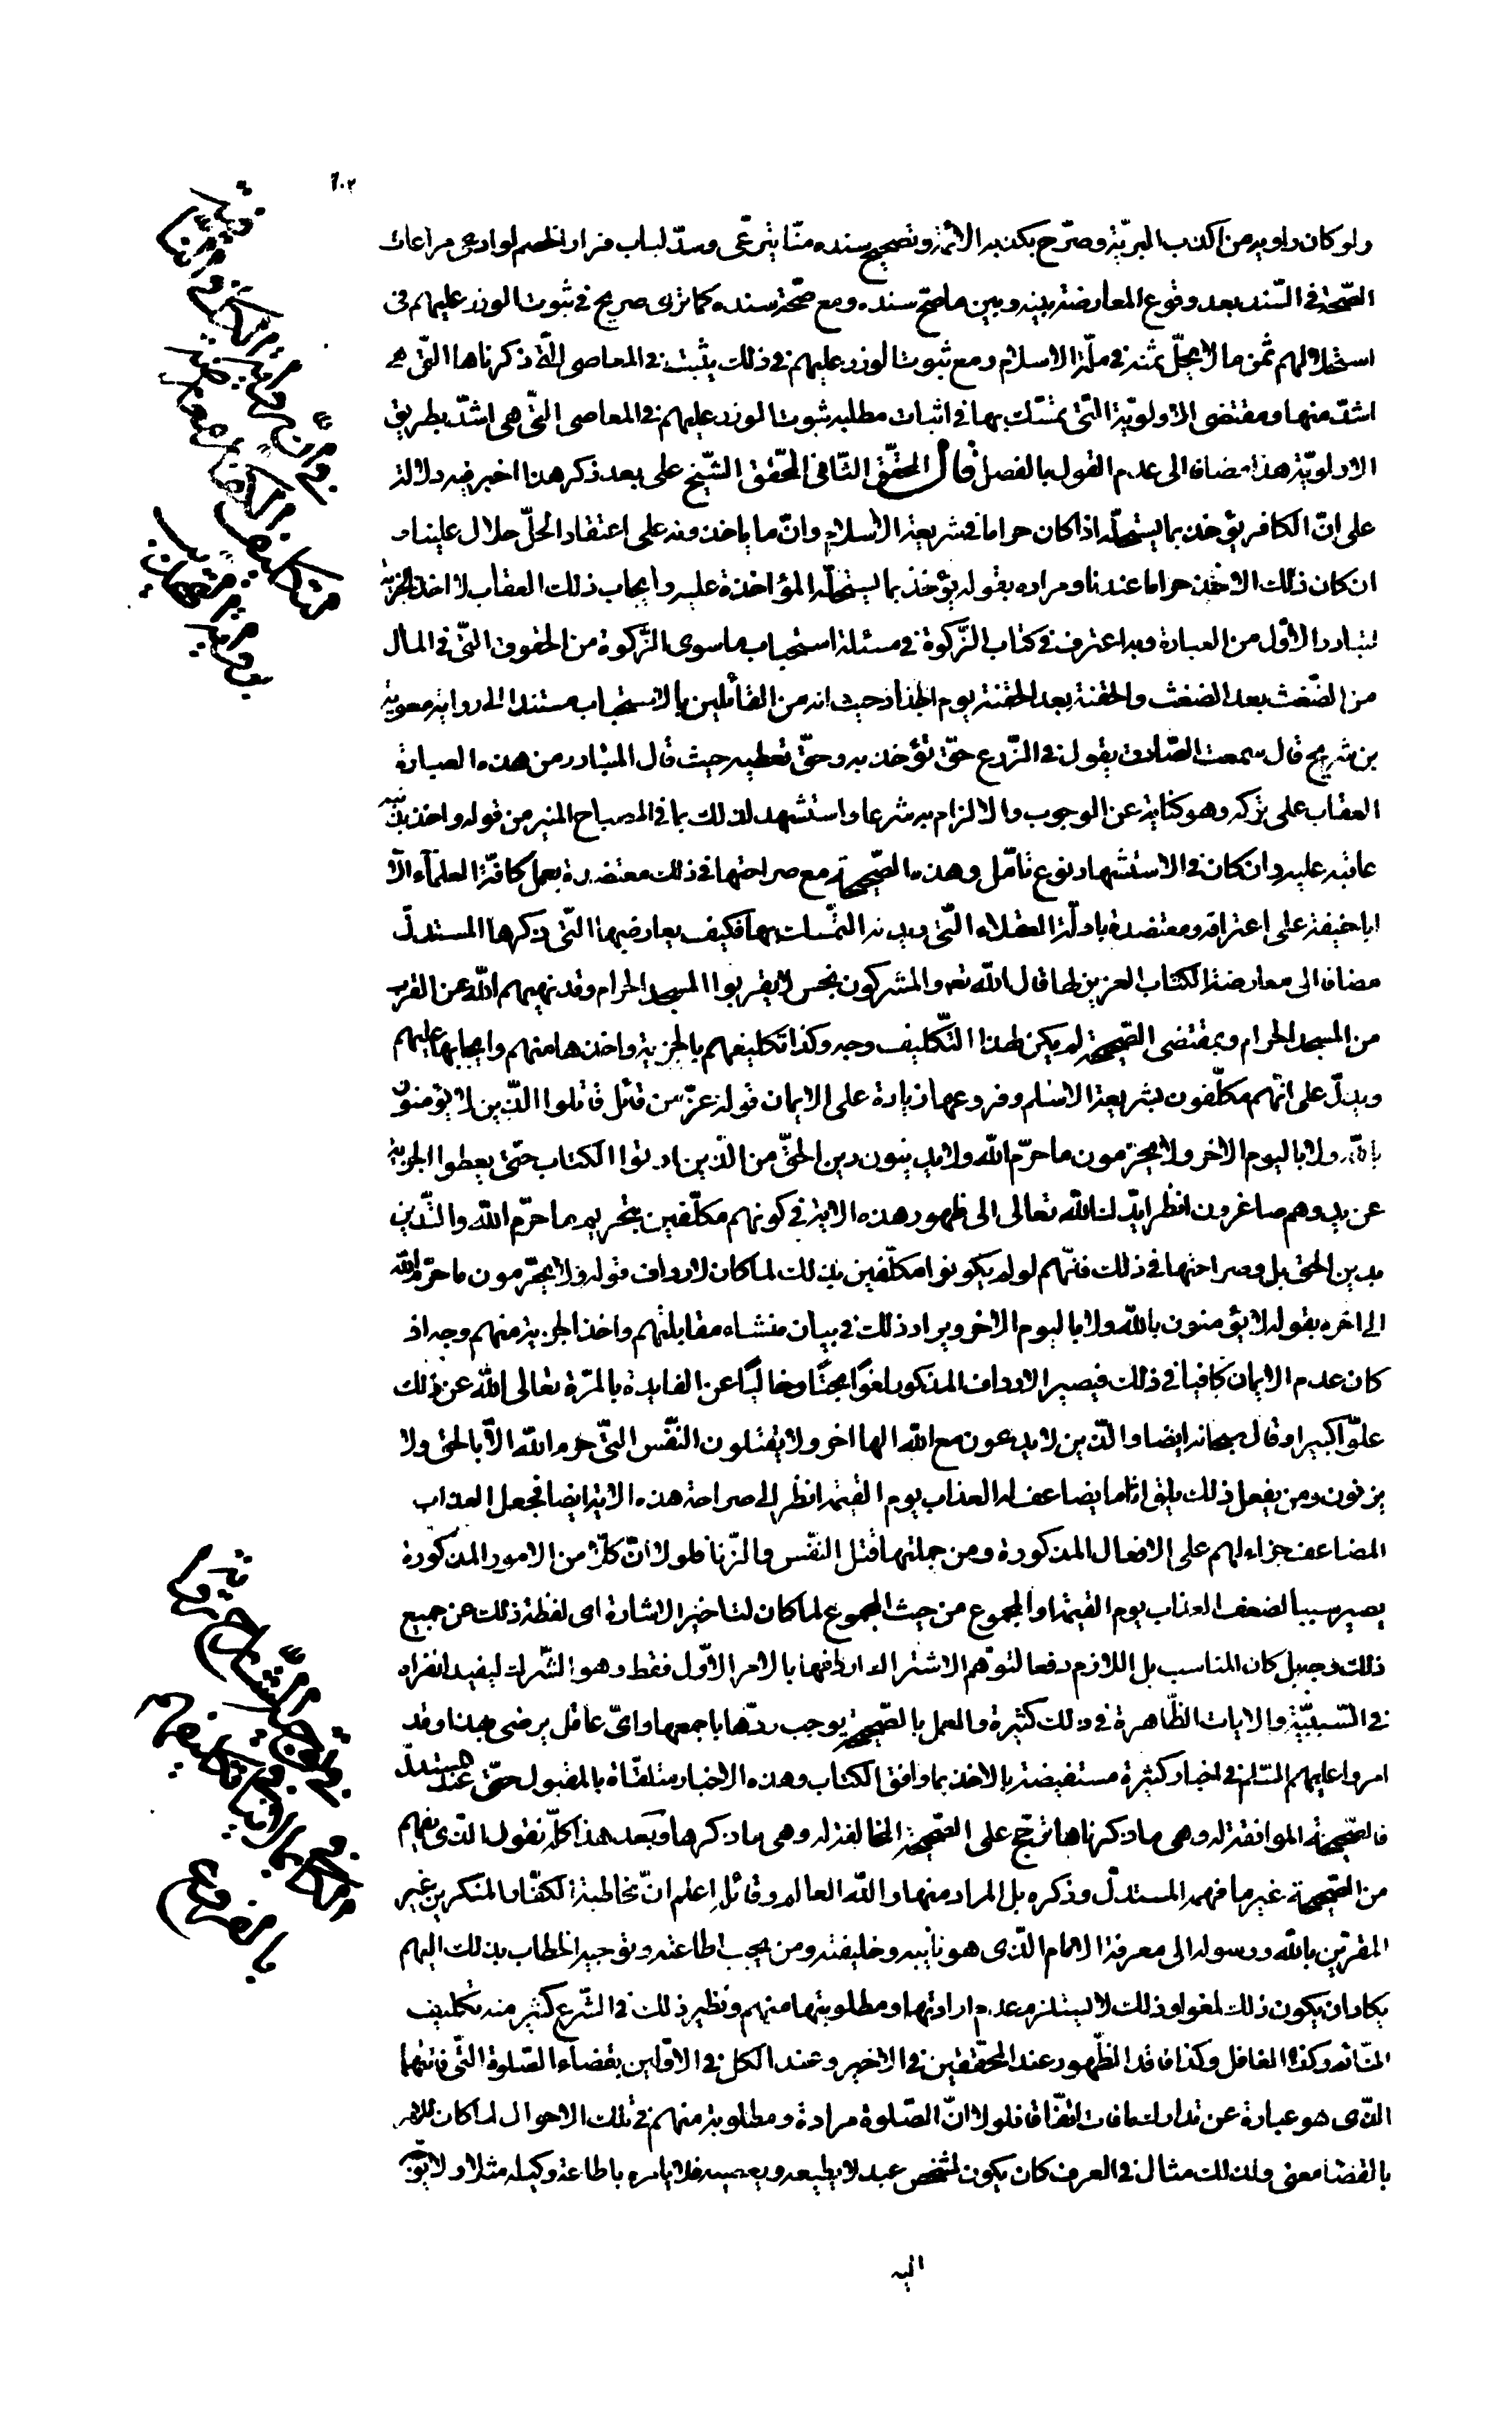 ٦٠٢
ولو كان راويه من اكذب البريّة وصرّح بكذبه الائمة وتصحيح سنده منّا يترعّى وسدّ لباب فرار الخصم لو ادعى مراعات
الصّحة فى السّند بعد وقوع المعارضة بينه وبين ما صحّ سنده ومع صحّة سنده كما ترى صريح فى ثبوت الوزر عليهم فى
استحلالهم ثمن ما لا يحلّ ثمنه فى ملّة الاسلام ومع ثبوت الوزر عليهم فى ذلك يثبت فى المعاصى الّتى ذكرناها التّى هى
اشدّ منها ومقتضى الاولويّة التّى يتمسّك بها فى اثبات مطلبه ثبوت الوزر عليهم فى المعاصى التّى هى اشدّ بطريق
الاولويّة هذا مضافا الى عدم القول بالفصل قال المحقّق الثّانى المحقّق الشّيخ على بعد ذكر هذا الخبر فيه دلالة
على انّ الكافر يؤخذ بما يستحلّه اذا كان حراما فى شريعة الاسلام وانّ ما ياخذونه على اعتقاد الحلّ حلال علينا و
ان كان ذلك الاخذ حراما عندنا ومراده بقوله يؤخذ بما يستحلّه المؤاخذة عليه وايجاب ذلك العقاب لا اخذ الجزية
لتبادر الاوّل من العبارة وبه اعترف فى كتاب الزّكوة فى مسئلة استحباب ما سوى الزّكوة من الحقوق التّى فى المال
من الضّغث بعد الضغث والحفنة بعد الحفنة يوم الجذاذ حيث انه من القائلين بالاستحباب مستندا الى رواية معوية
بن شريح قال سمعت الصّادق يقول فى الزّرع حقّ تؤخذ به وحقّ تعطيه حيث قال المتبادر من هذه العبارة
العقاب على تركه وهو كناية عن الوجوب والالزام به شرعا واستشهد لذلك بما فى المصباح المنير من قوله واخذ بذنبه
عاقبه عليه وان كان فى الاستشهاد نوع تامّل وهذه الصّحيحة مع صراحتها فى ذلك معتضدة بعمل كافّة العلمآء الّا
ابا حنيفة على اعترافه ومعتضدة بادلّة العقلاء التّى يريد التمّسك بها فكيف يعارضها التّى ذكرها المستدلّ
مضافا الى معارضة الكتاب العزيز لها قال اللّه تعه والمشركون نجس لا يقربوا المسجد الحرام وقد نهيهم اللّه عن القرب
من المسجد الحرام وبمقتضى الصّحيحة لم يكن لهذا التّكليف وجه وكذا تكليفهم بالجزية واخذها منهم وايجابها عليهم
ويدلّ على انّهم مكلّفون بشريعة الاسلم وفروعها زيادة على الايمان قوله عزّ من قائل قاتلوا الّذين لا يؤمنون
باللّه ولا باليوم الاخر ولا يحرّمون ما حرّم اللّه ولا يدينون دين الحقّ من الّذين اوتوا الكتاب حتّى يعطوا الجزية
عن يد وهم صاغرون انظر ايّدك اللّه تعالى الى ظهور هذه الاية فى كونهم مكلّفين بتحريم ما حرّم اللّه والتّدين
بدين الحق بل وصراحتها فى ذلك فانّهم لو لم يكونوا مكلّفين بذلك لما كان لارداف قوله ولا يحرّمون ما حرّم اللّه
الى اخره بقوله لا يؤمنون باللّه ولا باليوم الاخر ويراد ذلك فى بيان منشاء مقابلتهم واخذ الجزية منهم وجه اذ
كان عدم الايمان كافيا فى ذلك فيصير الارداف المذكور لغوًا محتًا وخاليًا عن الفايدة بالمرّة تعالى اللّه عن ذلك
علوّا كبيرا وقال سبحانه ايضا والّذين لا يدعون مع اللّه الها اخر ولا يقتلون النفّس التّى حرم اللّه الاّ بالحق ولا
يزنون ومن يفعل ذلك يلق اثاما يضاعف له العذاب يوم القيمة انظر الى صراحة هذه الاية ايضا فجعل العذاب
المضاعف جزاء لهم على الافعال المذكورة ومن جملتها قتل النفّس والزّنا فلولا انّ كلّا من الامور المذكورة
يصير سببا لضعف العذاب يوم القيمة او المجموع من حيث المجموع لما كان لتاخير الاشارة اى لفظة ذلك عن جميع
ذلك وجه بل كان المناسب بل اللازم دفعا لتوهّم الاشتراك اردافها بالامر الاوّل فقط وهو الشّرك ليفيد انفراده
فى السّببيّة والايات الظّاهرة فى ذلك كثيرة والعمل بالصّحيحة يوجب ردّها باجمعها واىّ عاقل يرضى بهذا وقد
امروا عليهم السّلم فى اخبار كثيرة مستفيضة بالاخذ بما وافق الكتاب وهذه الاخبار متلقّاة بالقبول حتّى عند المستدلّ
فالصّحيحة الموافقة له وهى ما ذكرناها ترجّح على الصّحيحة المخالفة له وهى ما ذكرها وبعد هذا كلّه نقول الّذى يفهم
من الصّحيحة غير ما فهمه المستدلّ وذكره بل المراد منها واللّه العالم وقائله اعلم انّ مخاطبة الكفّار المنكرين غير
المقرّين باللّه ورسوله الى معرفة الامام الّذى هو نايبه وخليفته ومن يجب اطاعته وتوجيه الخطاب بذلك اليهم
يكاد ان يكون ذلك لغوا وذلك لا يستلزم عدم ارادتها ومطلوبيتها منهم ونظير ذلك فى الشّرع كثير منه تكليف
النّائم وكذا الغافل وكذا فاقد الطّهور عند المحقّقين فى الاخير وعند الكل فى الاوّلين بقضاء الصّلوة التّى فاتتهما
الّذى هو عبارة عن تدارك ما فات اتفّاقا فلولا انّ الصّلوة مرادة ومطلوبة منهم فى تلك الاحوال لما كان للامر
بالقضا معنى ولذلك مثال فى العرف كان يكون لشخص عبد لا يطيعه ويعصيه فلا يامره باطاعة وكيله مثلا ولا يوجّه
اليه